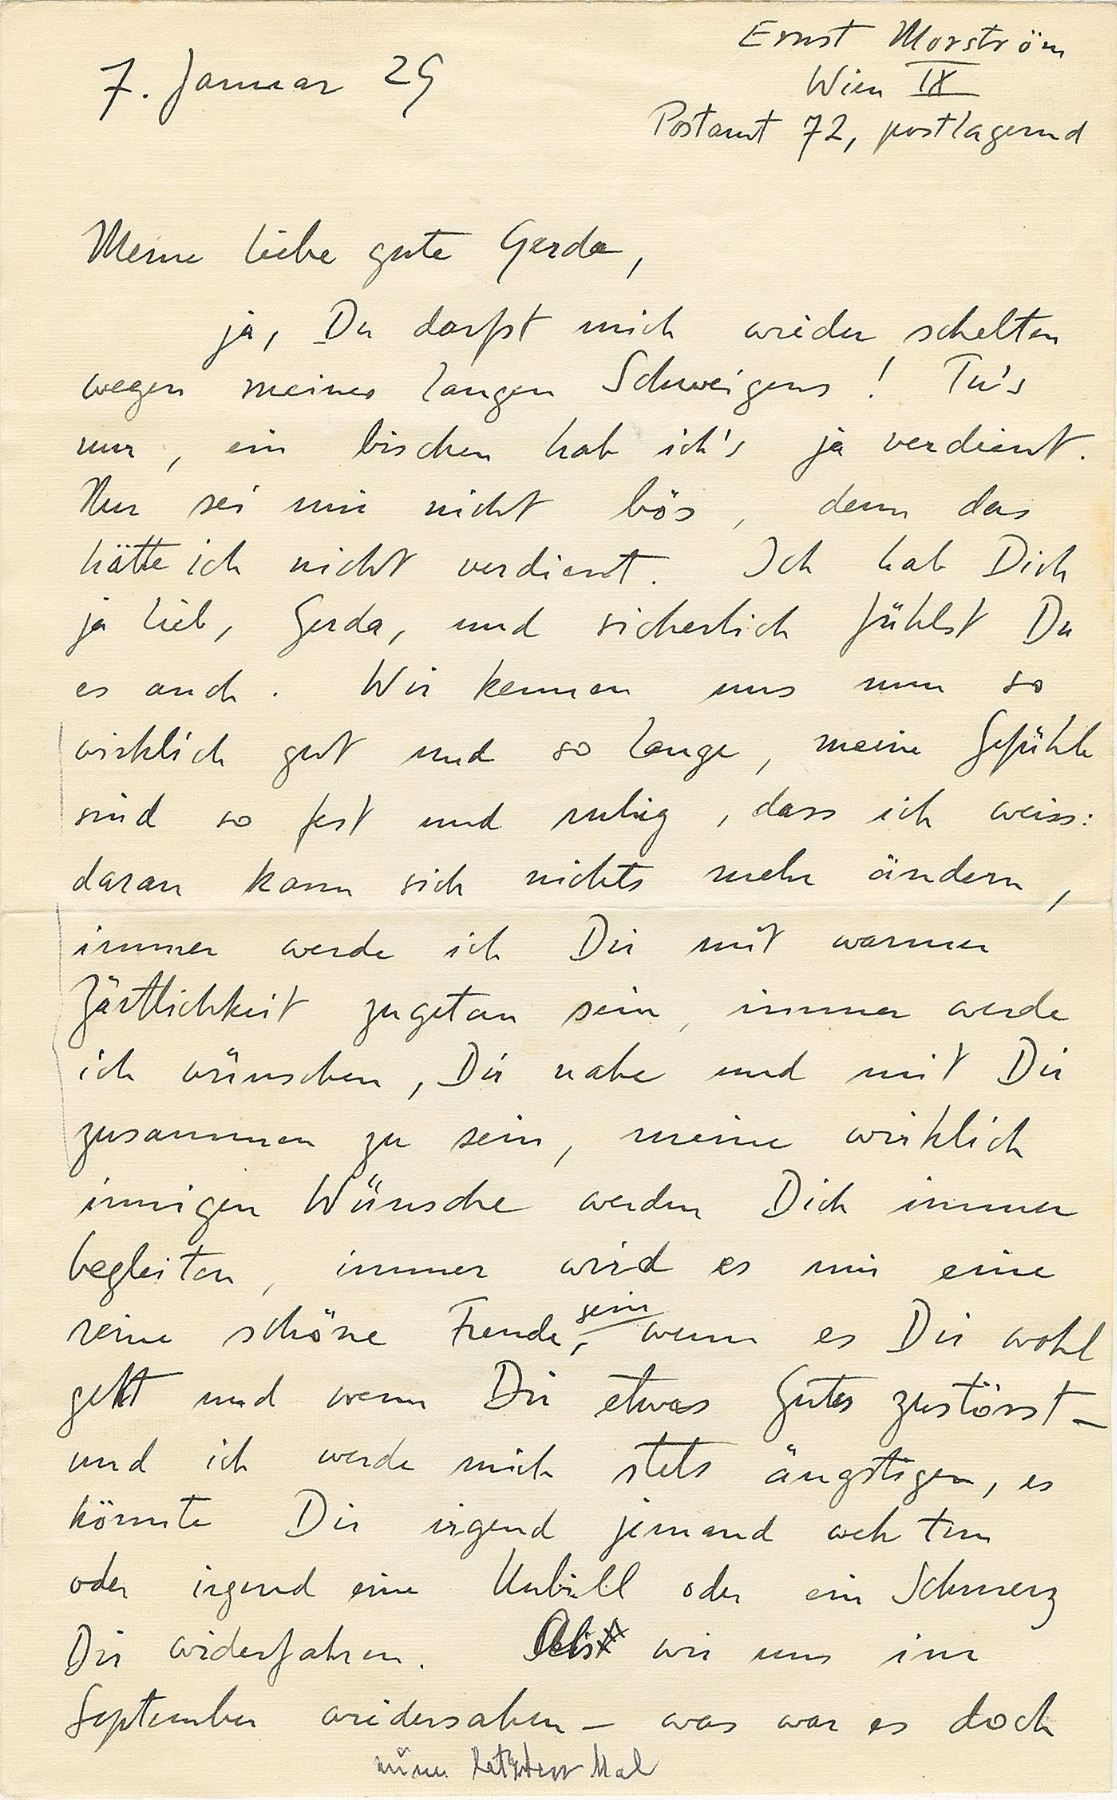 Ernst Morström
Wien IX
7. Januar 29
Postamt 72, postlagernd
Meine liebe gute Gerda,
ja, Du darfst mich wieder schelten
wegen meines langen Schweigens! Tu's
nur, ein bischen hab ich's ja verdient.
Nur sei mir nicht bös, denn das
hätte ich nicht verdient. Ich hab Dich
ja lieb, Gerda, und sicherlich fühlst Du
es auch. Wir kennen uns nun so
wirklich gut und so lange, meine Gefühle
sind so fest und ruhig, dass ich weiss:
daran kann sich nichts mehr ändern,
immer werde ich Dir mit warmer
Zärtlichkeit zugetan sein, immer werde
ich wünschen, Dir nahe und mit Dir
zusammen zu sein, meine wirklich
innigen Wünsche werden Dich immer
begleiten, immer wird es mir eine
reine schöne Freude sein, wenn es Dir wohl
geht und wenn Dir etwas Gutes zustösst –
und ich werde mich stets ängstigen, es
könnte Dir irgend jemand weh tun
oder irgend eine Unbill oder ein Schmerz
Dir widerfahren. Als wir uns im
September wiedersahen – was war es doch
letzten Mal